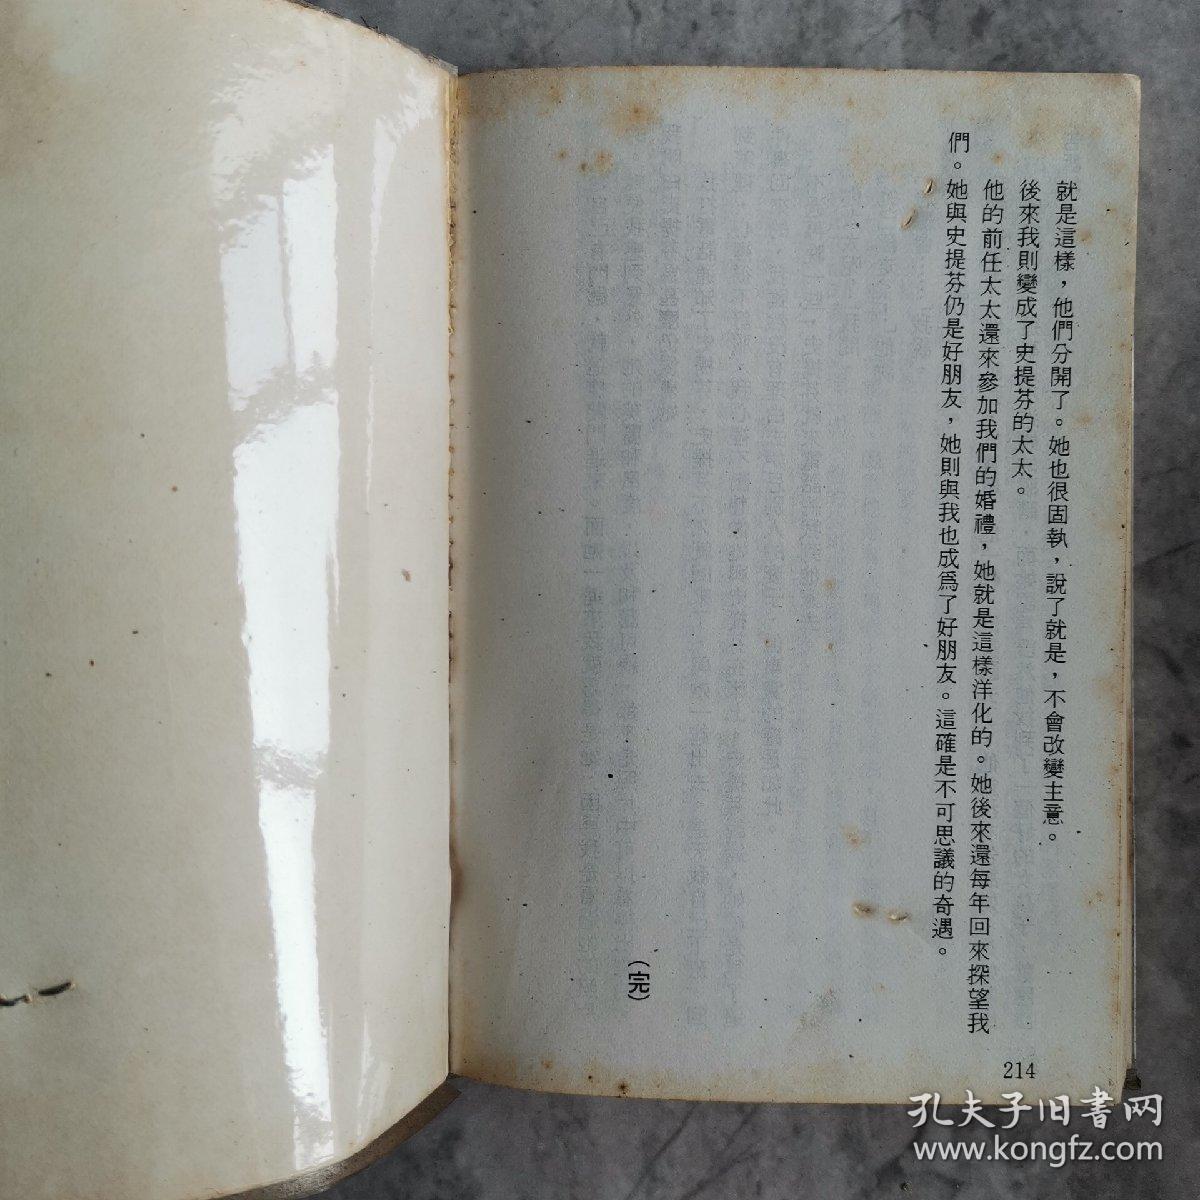 就是這樣，他們分開了。她也很固執，說了就是，不會改變主意。
後來我則變成了史提芬的太太。
他的前任太太還來參加我們的婚禮，她就是這樣洋化的。她後來還每年回來探望我
們。她與史提芬仍是好朋友，她則與我也成爲了好朋友。這確是不可思議的奇遇。
（完）
214
孔夫子旧書网
www.kongfz.com